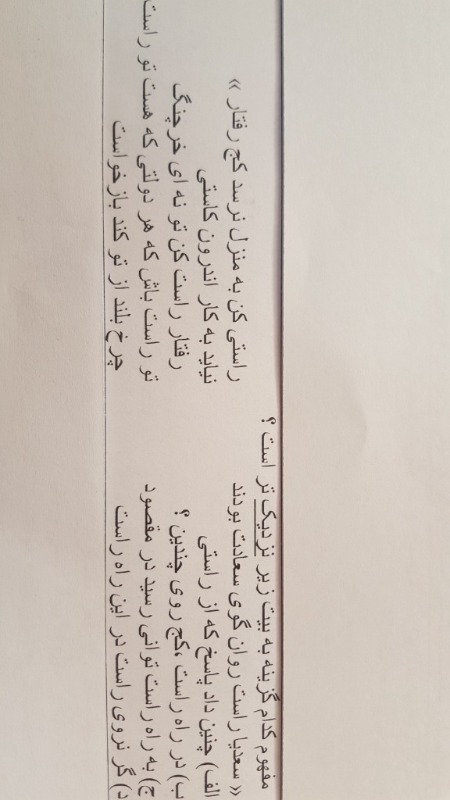 مفهوم کدام گزینه به بیت زیر نزدیک تر است ؟
« سعدیا راست روان گوی سعادت بودند راستی کن به منزل نرسد کج رفتار »
الف) چنین داد پاسخ که از راستی نیاید به کار اندرون کاستی
ب) در راه راست ،کج روی چندین ؟ رفتار راست کن تو نه ای خرچنگ
ج) به راه راست توانی رسید در مقصود تو راست باش که هر دولتی که هست تو راست
د) گر نروی راست در این راه راست چرخ بلند از تو کند بازخواست